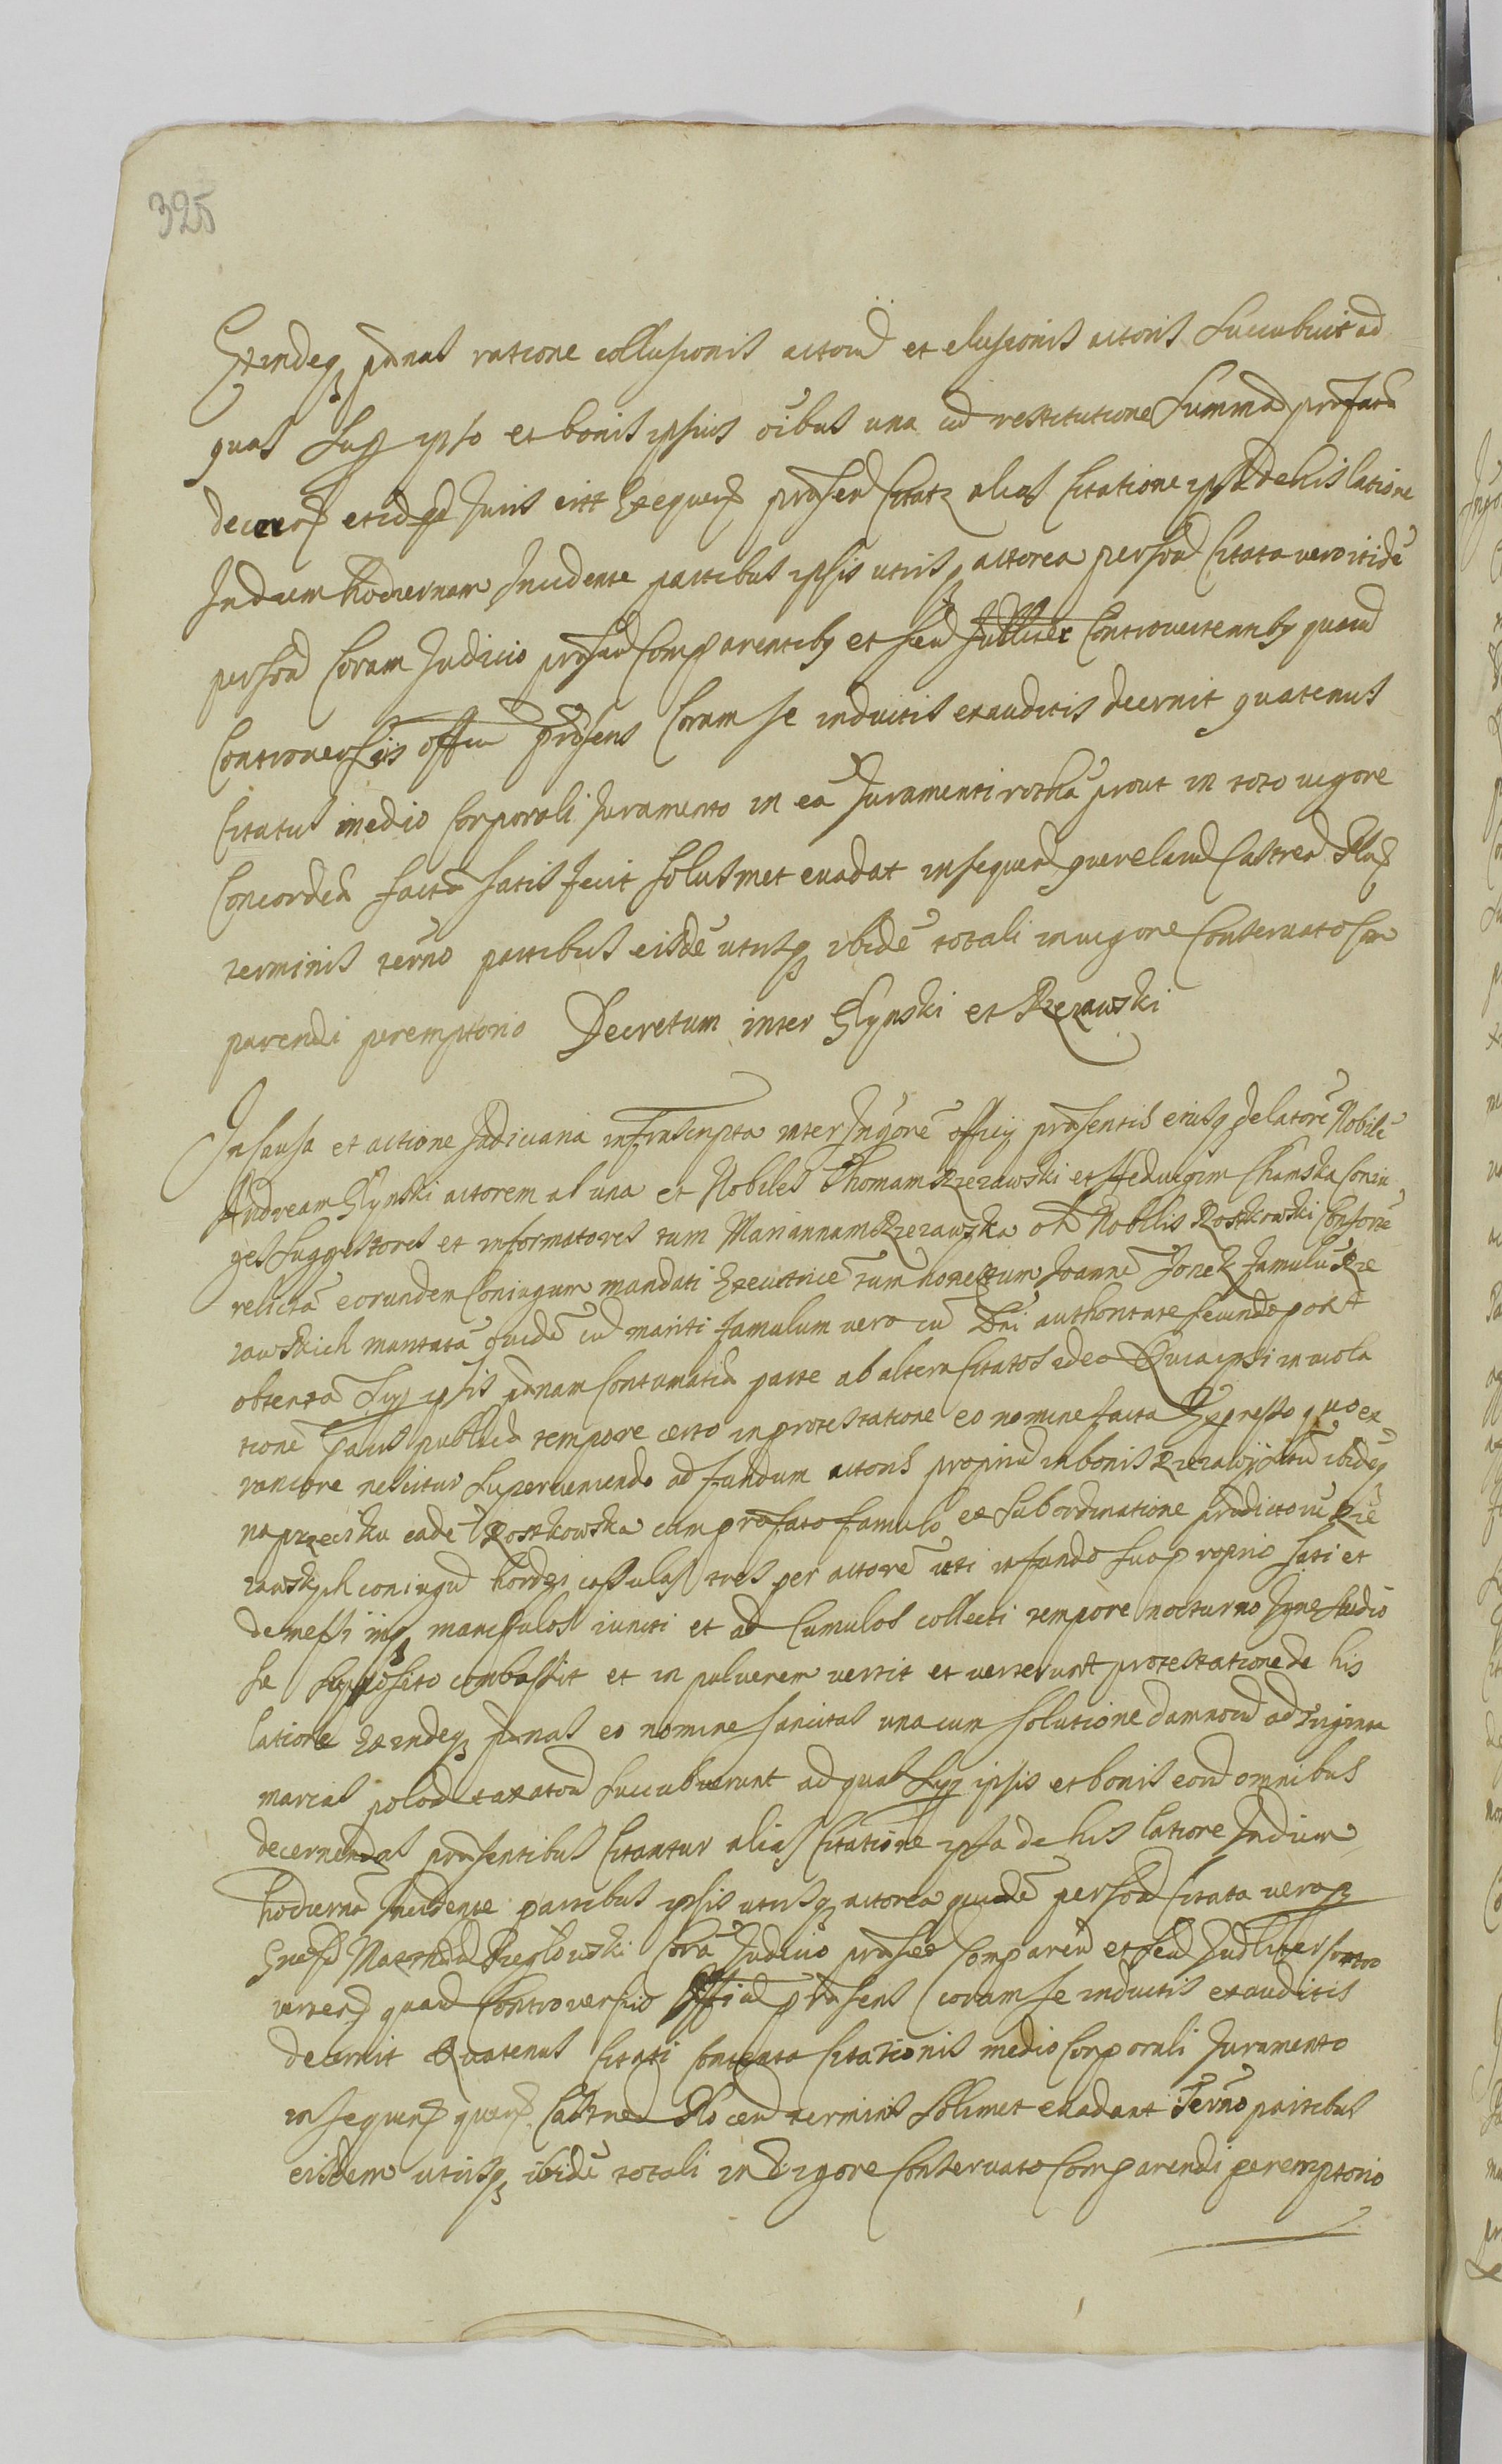 325
Exindeq3 pænas ratione collusionis actorū et elusionis actoris succubuit ad
quas sup ipso et bonis ipsius oībus una cū restitutione summæ præfatæ
decern et id qd Juris erit Exequen præsen Citat alias Citatione ipsa de his latiore
In diem hodiernam Incidente partibus ipsis utrisq3 actorea person Citata vero itidē
person Coram Judicio præsen Comparentib9 et sew Judlitter Controvertentib9 quarū
Controversiis offm præsens Coram se inductis exauditis decernit quatenus
Citatus medio Corporali Juramento in eā Juramenti rothā prout in toto vigore
Concordiæ factæ satis fecit solusmet evadat in sequen querelarū Castren
terminis termno partibus eisdē utrisq3 ibidē totali in vigore Conservato Com
parendi peremptorio Decretum inter Glynski et Rzezawski
In Causa et actione Judiciaria infrascripta inter Insgtorē officij præsentis eiusq3 delatorē Nobilē
Andream Glynski actorem ab una et Nobiles Thomam Rzezawski et Heduigim Chamska Coniu
ges suggestores et informatores tum Mariannam Rzezawska olim Nobilis Rostkowski Consortē
relictā eorundem Coniugum mandati Executricē tum honestum Joannē Jonek famulū Rze
zawskich maritatā quidē cū mariti famulum vero cū Dni authoritate secundo post
obtentā sup ipsis pænam Contumaciæ parte ab altera Citatos ideo Quia ipsi in viola
tionē pacis publicæ tempore certo in protestatione eo nomine facta Expresso quo ex
rancore nescitur superveniendo ad fundum actoris propriū in bonis Rzezawij situm ibideq3
naprzecisku eadē Rostkowska cum præfato famulo ex subordinatione prædictorū Rze
zawskich coniugū hordei cassulas tres per actorē uti in fundo suo proprio sati et
demessi inq3 manipulos iuncti et ad Cumulos collecti tempore nocturno Igne studio
se supposito combussit et in pulverem vertit et verterunt protestatione de his
latiore Exindeq3 pænas eo nomine sancitas una cum solutione damnorū ad triginta
marcas polon taxatorū succubuerunt ad quas sup ipsis et bonis eorū omnibus
decernendas præsentibus Citantur alias Citatione ipsa de his latiore In diem
hodiernā Incidente partibus ipsis utrisq3 actorea quidē person Citata vero p
Gnesū Maximū Rzeszowski Corā Judicio præsen Comparen et sew Judlitter Contro
verten quarū Controversiis Officiū præsens Coram se inductis exauditis
decernit Quatenus Citati Contenta Citationis medio Corporali Juramento
in sequen quær Castren Plocen terminis solimet evadant Termno partibus
eisdem utrisq3 ibidē totali in vigore Conservato Comparendi peremptorio